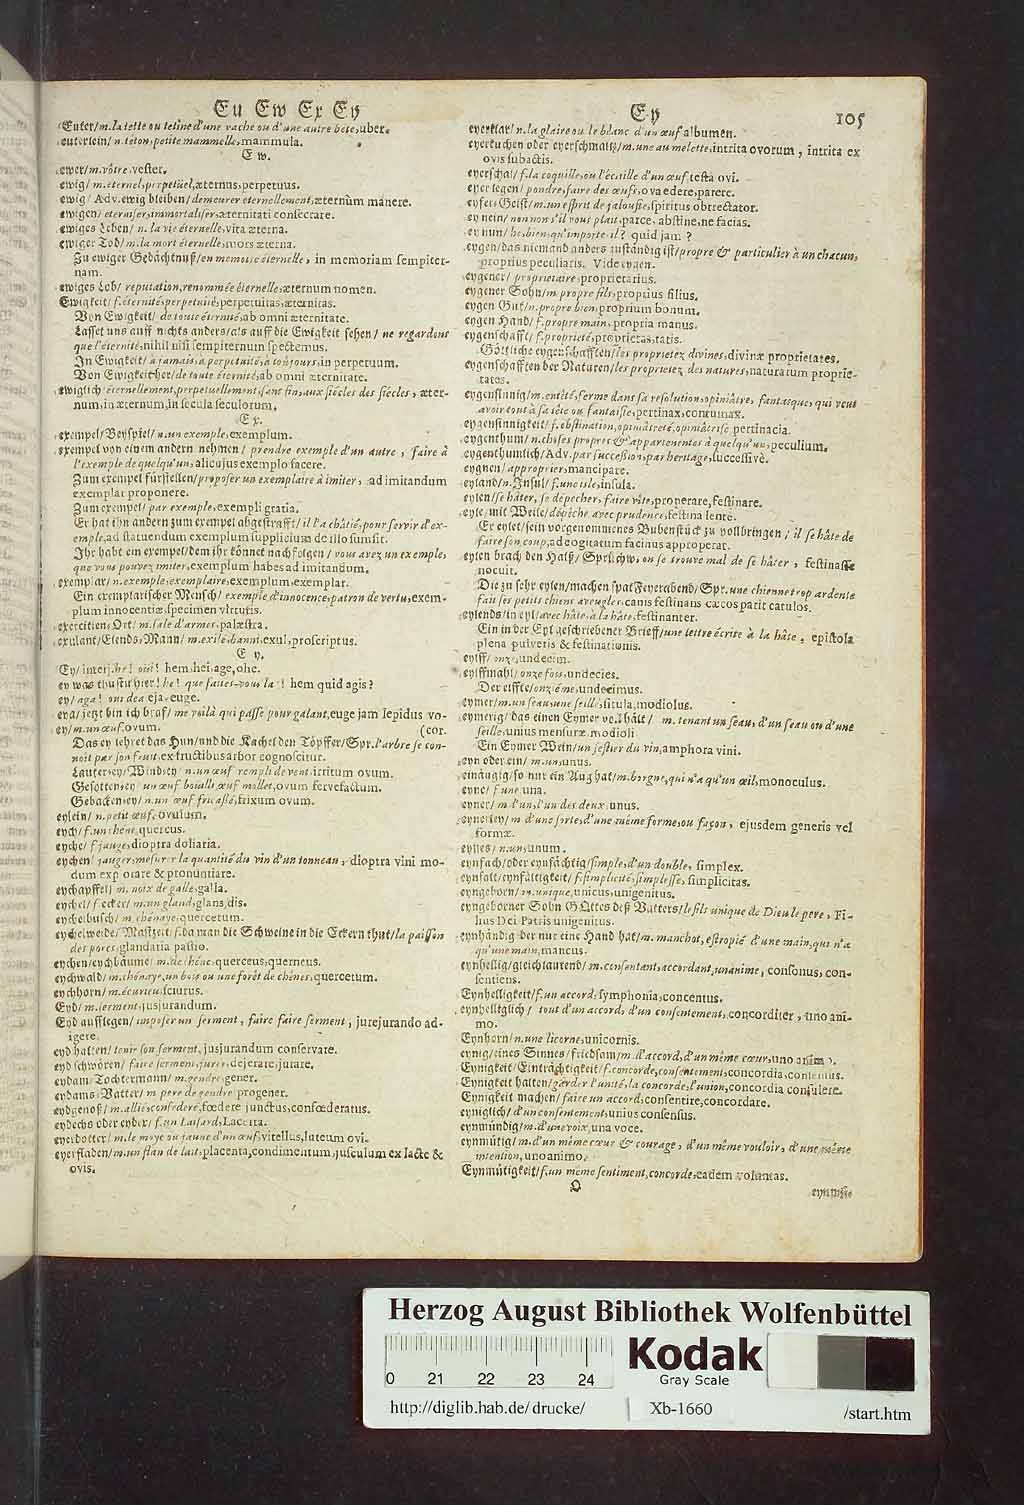 Eu Ew Ex Ey
Euter/ m. la tette ou tetine d'une vache ou d'une autre bête, uber.
euterlein/ n. teton, petite mammelle, mammula.
Ew.
ewer/ m. vôtre, vester.
ewig/ m. éternel, perpétuel, æternus, perpetuus.
ewig/ Adv. ewig bleiben/ demeurer eternellement, æternùm manere.
ewigen/ eterniser, immortaliser, æternitati consecrare.
ewiges Leben/ n. la vie éternelle, vita æterna.
ewiger Tod/ m. la mort éternelle, mors æterna.
Zu ewiger Gedächtnuß/ en memoire éternelle, in memoriam sempiter-
nam.
ewiges Lob/ reputation, renommée éternelle, æternum nomen.
Ewigkeit/ f. éternité, perpetuité, perpetuitas, æternitas.
Von Ewigkeit/ de toute éternité, ab omni æternitate.
Lasset uns auff nichts anders/ als auff die Ewigkeit sehen/ ne regardons
que l'éternité, nihil nisi sempiternum spectemus.
In Ewigkeit/ à jamais, à perpetuité, à toûjours, in perpetuum.
Von Ewigkeit her/ de toute éternité, ab omni æternitate.
ewiglich/ éternellement, perpetuellement, sans fin, aux siécles des siécles, æter-
num, in æternum, in secula seculorum.
Ex.
exempel/ Beyspiel/ n. un exemple, exemplum.
exempel von einem andern nehmen/ prendre exemple d'un autre, faire à
l'exemple de quelqu'un, alicujus exemplo facere.
Zum exempel fürstellen/ proposer un exemplaire à imiter, ad imitandum
exemplar proponere.
Zum exempel/ par exemple, exempli gratia.
Er hat ihn andern zum exempel abgestrafft/ il l'a châtié, pour servir d'ex-
emple, ad statuendum exemplum supplicium de illo sumsit.
Ihr habt ein exempel/ dem ihr könnet nachfolgen/ vous avez un exemple,
que vous pouvez imiter, exemplum habes ad imitandum.
exemplar/ n. exemple, exemplaire, exemplum, exemplar.
Ein exemplarischer Mensch/ exemple d'innocence, patron de vertu, exem-
plum innocentiæ, specimen virtutis.
exercitien, Ort/ m. sale d'armes, palæstra.
exulant/ Elends, Mann/ m. exilé, banni, exul, proscriptus.
Ey.
Ey/ interj. he! oui! hem, hei, age, ohe.
ey was thustu hier! he! que faites-vous la! hem quid agis?
ey/ aga! oui dea eja, euge.
eya/ jetzt bin ich braf/ me voilà qui passe pour galant, euge jam lepidus vo-
ey/ m. un œuf, ovum. (cor.
Das ey lehret das Hun/ und die Kachel den Töpffer/ Spr. l'arbre se con-
noît par son fruit, ex fructibus arbor cognoscitur.
Lauterey/ Windey/ n. un œuf rempli de vent, irritum ovum.
Gesotten ey/ un œuf bouilli, œuf mollet, ovum fervefactum.
Gebacken ey/ n. un œuf fricassé, frixum ovum.
eylein/ n. petit œuf, ovulum.
eych/ f. un chêne, quercus.
eyche/ f. jauge, dioptra doliaria.
eychen/ jauger, mesurer la quantité du vin d'un tonneau, dioptra vini mo-
dum explorare & pronuntiare.
eychapffel/ m. noix de galle, galla.
eychel/ f. ecker/ m. un gland, glans, dis.
eychelbusch/ m. chênaye, quercetum.
eychelweide/ Mastzeit/ f. da man die Schweine in die Eckern thut/ la paisson
des porcs, glandaria pastio.
eychen/ eychbäume/ m. de chêne, querceus, querneus.
eychwald/ m. chênaye, un bois ou une forêt de chênes, quercetum.
eychhorn/ m. écurieu, sciurus.
Eyd/ m. serment, jusjurandum.
Eyd aufflegen/ imposer un serment, faire faire serment, jurejurando ad-
igere.
eyd halten/ tenir son serment, jusjurandum conservare.
eyd schwören/ faire serment, jurer, dejerare, jurare.
eydam/ Tochtermann/ m. gendre, gener.
eydams Vatter/ m. pere de gendre, progener.
eydgenoß/ m. allié, confederé, fœdere junctus, confœderatus.
eydechs oder eyder/ f. un laisard, Lacerta.
eyerdotter/ m. le moye ou jaune d'un œuf, vitellus, luteum ovi.
eyerfladen/ m. un flan de lait, placenta, condimentum, jusculum ex lacte &
ovis.
Ey. 105
eyerklar/ n. la glaire ou le blanc d'un œuf, albumen.
eyerkuchen oder eyerschmaltz/ m. une aumelette, intrita ovorum, intrita ex
ovis subactis.
eyerschal/ f. la coquille, ou l'écaille d'un œuf, testa ovi.
eyer legen/ pondre, faire des œufs, ova edere, parere.
eyfers Geist/ m. un esprit de jalousie, spiritus obtrectator.
ey nein/ non non s'il vous plait, parce, abstine, ne facias.
ey nun/ he, bien, qu'importe-il? quid jam?
eygen/ das niemand anders zuständig ist/ propre & particulier à un chacun,
proprius peculiaris. Vide eigen.
eygener/ proprietaire, proprietarius.
eygener Sohn/ m. propre fils, proprius filius.
eygen Gut/ n. propre bien, proprium bonum.
eygen Hand/ f. propre main, propria manus.
eygenschafft/ f. proprieté, proprietas, tatis.
Göttliche eygenschafften/ les proprietez divines, divinæ proprietates.
eygenschafften der Naturen/ les proprietez des natures, naturarum proprie-
tates.
eygensinnig/ m. entêté, ferme dans sa resolution, opiniâtre, fantasque, qui veut
avoir tout à sa tête ou fantaisie, pertinax, contumax.
eygensinnigkeit/ f. obstination, opiniâtreté, opiniâtrise, pertinacia.
eygenthum/ n. choses propres & appartenentes à quelqu'un, peculium.
eygenthumlich/ Adv. par succession, par heritage, successivè.
eygnen/ approprier, mancipare.
eyland/ n. Insul/ f. une isle, insula.
eylen/ se hâter, se dépecher, faire vîte, properare, festinare.
eyle/ mit Weile/ dépêche avec prudence, festina lentè.
Er eylet/ sein vorgenommenes Bubenstück zu vollbringen/ il se hâte de
faire son coup, ad cogitatum facinus approperat.
eylen brach den Halß/ Sprichw. on se trouve mal de se hâter, festinasse
nocuit.
Die zu sehr eylen/ machen spat Feyerabend/ Spr. une chienne trop ardente
fait ses petits chiens aveugles, canis festinans cæcos parit catulos.
eylends/ in eyl/ avec hâte, à la hâte, festinanter.
Ein in der Eyl geschriebener Brieff/ une lettre écrite à la hâte, epistola
plena pulveris & festinationis.
eylff/ onze, undecim.
eylffmahl/ onze fois, undecies.
Der eilffte/ onziéme, undecimus.
eymer/ m. un seau, une seille, situla, modiolus.
eymerig/ das einen Eymer voll hält/ m. tenant un seau, d'un seau ou d'une
seille, unius mensuræ modioli.
Ein Eymer Wein/ un sestier du vin, amphora vini.
eyn oder ein/ m. un, unus.
einäugig/ so nur ein Aug hat/ m. borgne, qui n'a qu'un œil, monoculus.
eyne/ f. une, una.
eyner/ m. l'un, l'un des deux, unus.
eynerley/ m. d'une sorte, d'une même forme, ou façon, ejusdem generis vel
formæ.
eynes/ n. un, unum.
eynfach/ oder eynfächtig/ simple, d'un double, simplex.
eynfalt/ eynfältigkeit/ f. simplicité, simplesse, simplicitas.
eyngeborn/ m. unique, unicus, unigenitus.
eyngeborner Sohn GOttes deß Vatters/ le fils unique de Dieu le pere, Fi-
lius Dei Patris unigenitus.
eynhändig/ der nur eine Hand hat/ m. manchot, estropié d'une main, qui n'a
qu'une main, mancus.
eynhellig/ gleichlautend/ m. consentant, accordant, unanime, consonus, con-
sentiens.
Eynhelligkeit/ f. un accord, symphonia, concentus.
eynhelliglich/ tout d'un accord, d'un consentement, concorditer, uno ani-
mo.
Eynhorn/ n. une licorne, unicornis.
eynig/ eines Sinnes/ friedsam/ m. d'accord, d'un même cœur, uno animo.
Eynigkeit/ Einträchtigkeit/ f. concorde, consentement, concordia, consensus.
Eynigkeit halten/ garder l'unité, la concorde, l'union, concordia consulere.
Eynigkeit machen/ faire un accord, consentire, concordare.
eyniglich/ d'un consentement, unius consensus.
eynmündig/ m. d'une voix, una voce.
eynmütig/ m. d'un même cœur & courage, d'un même vouloir, d'une même
intention, uno animo.
Eynmütigkeit/ f. un même sentiment, concorde, eadem voluntas.
O
Herzog August Bibliothek Wolfenbüttel
0 21 22 23 24
Kodak
Gray Scale
http://diglib.hab.de/drucke/ Xb-1660 /start.htm